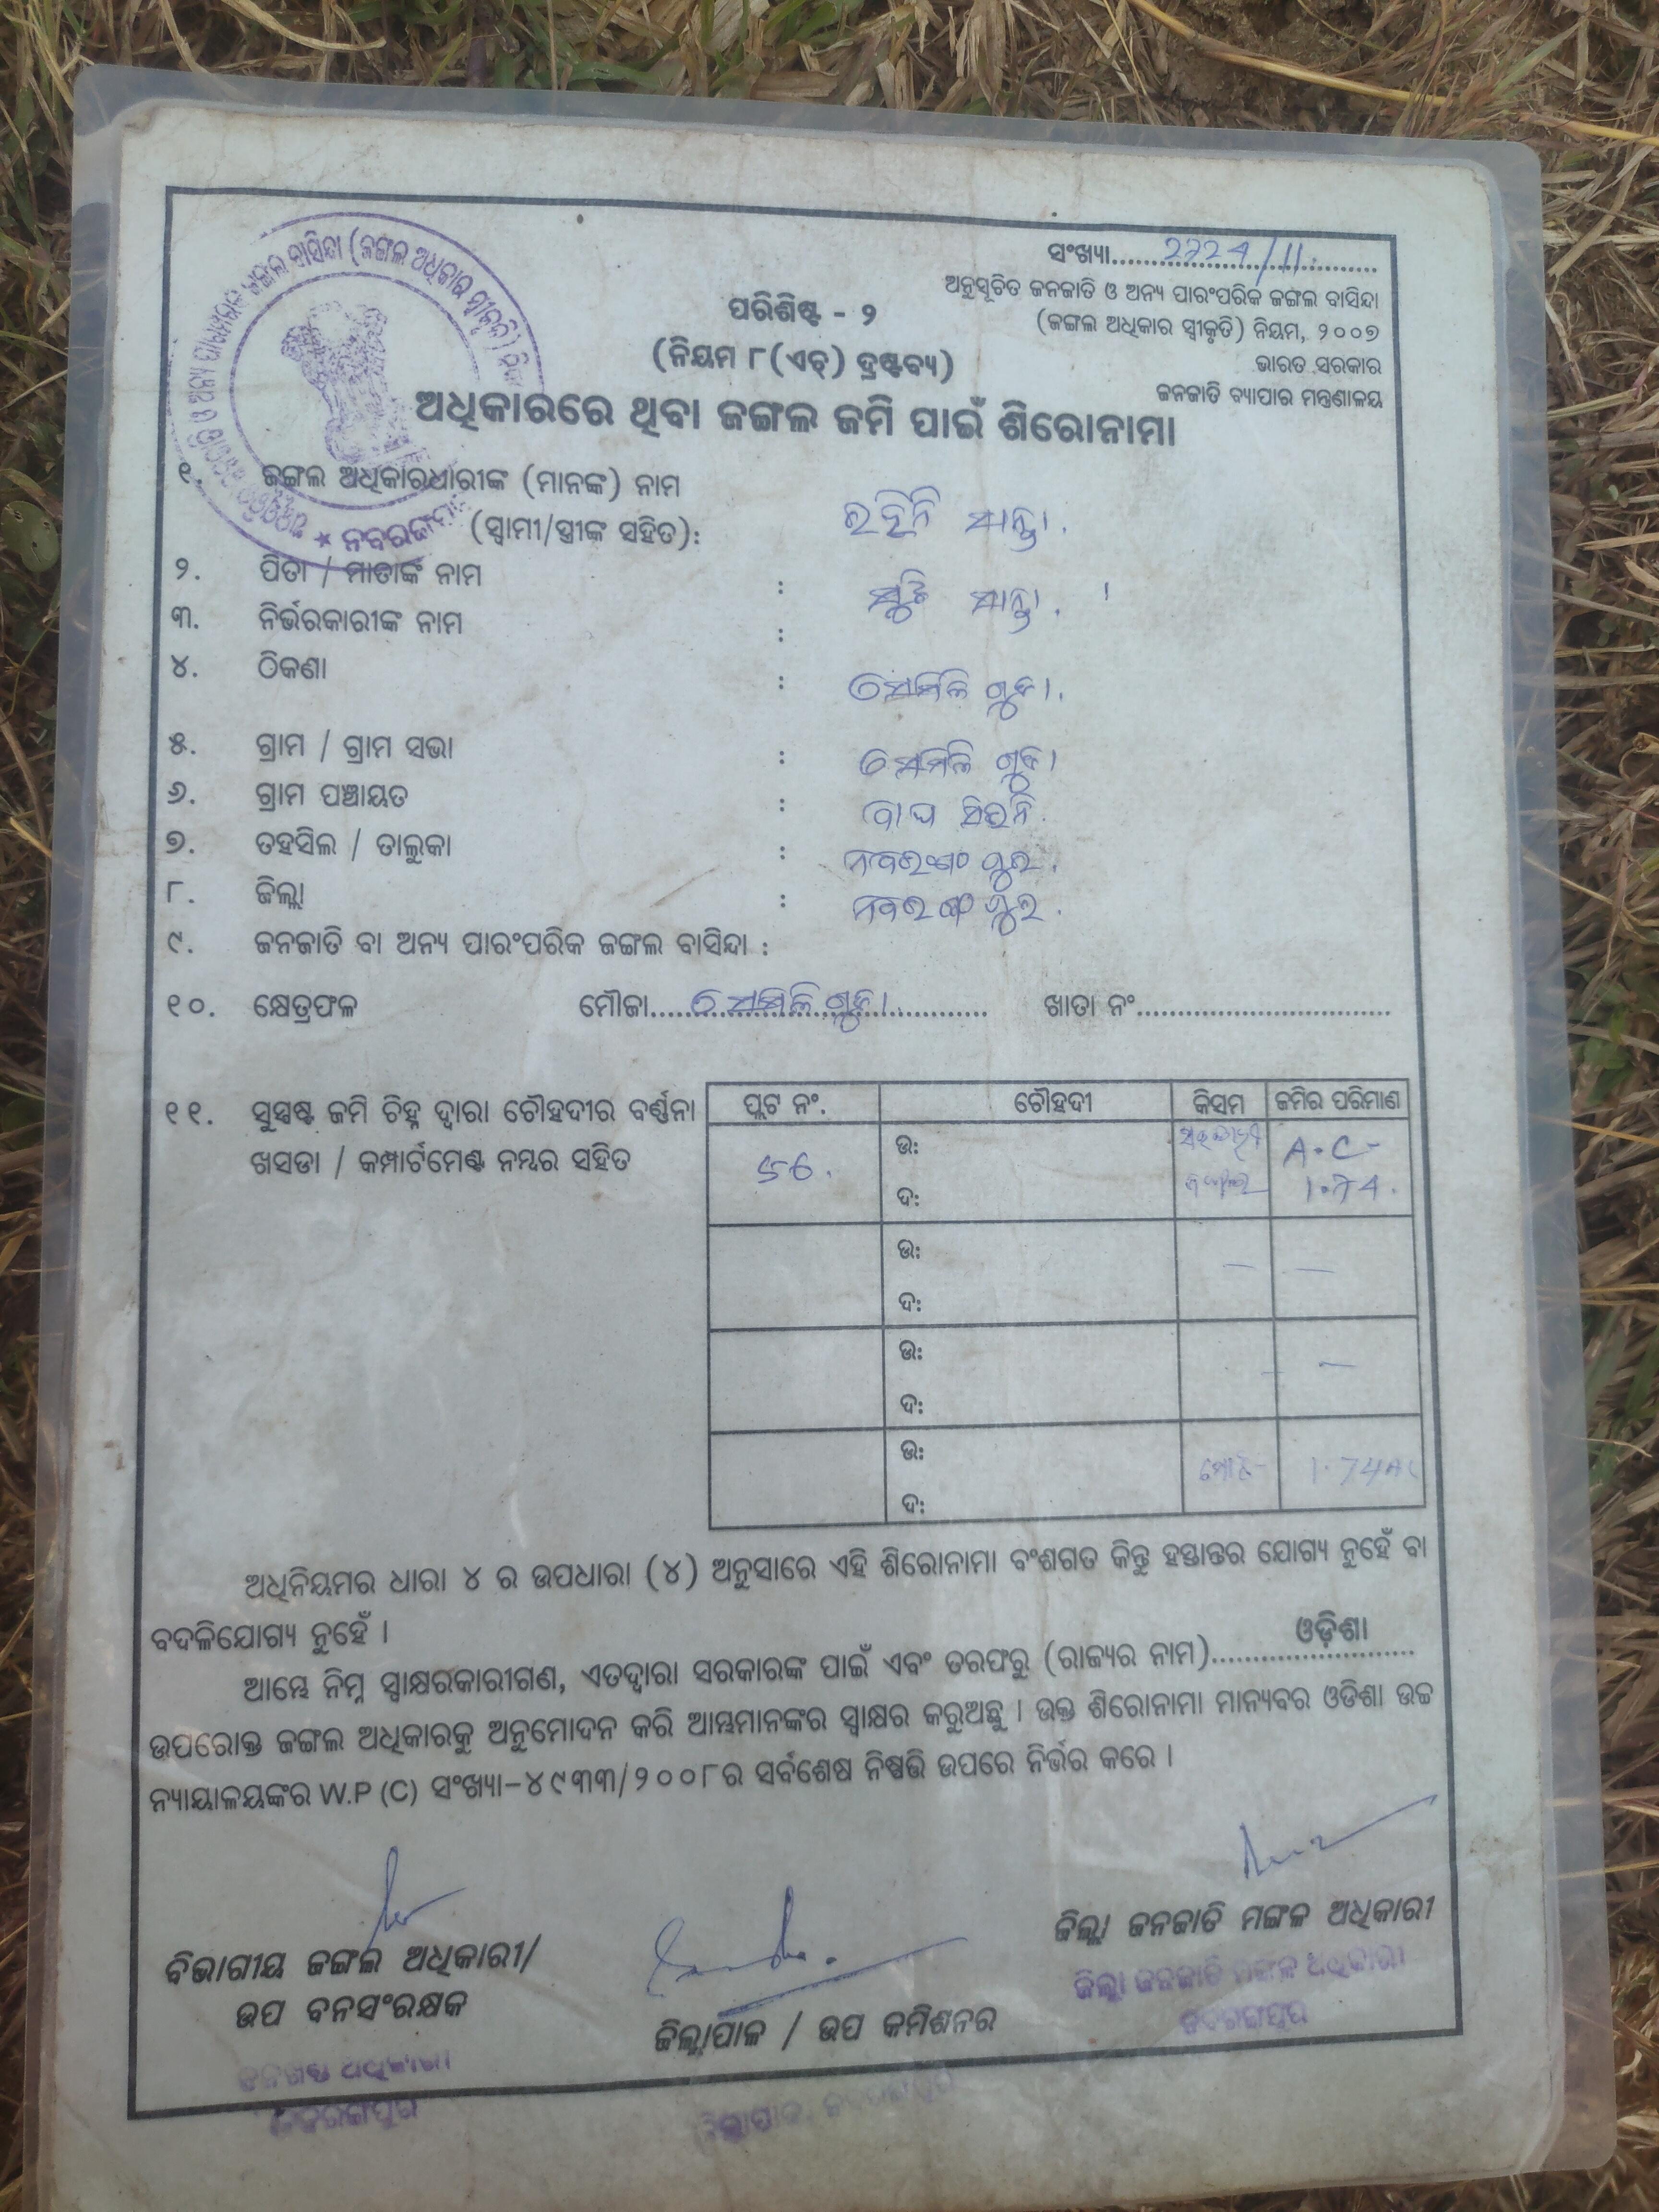 ସଂଖ୍ୟା.....2724/11.....
ଅନୁସୂଚିତ ଜନଜାତି ଓ ଅନ୍ୟ ପାରଂପରିକ ଜଙ୍ଗଲ ବାସିନ୍ଦା
(ଜଙ୍ଗଲ ଅଧିକାର ସ୍ୱୀକୃତି) ନିୟମ, ୨୦୦୭
ଭାରତ ସରକାର
ଜନଜାତି ବ୍ୟାପାର ମନ୍ତ୍ରଣାଳୟ
ପରିଶିଷ୍ଟ - ୨
(ନିୟମ ୮(ଏଚ୍) ଦ୍ରଷ୍ଟବ୍ୟ)
ଅଧିକାରରେ ଥିବା ଜଙ୍ଗଲ ଜମି ପାଇଁ ଶିରୋନାମା
୧. ଜଙ୍ଗଲ ଅଧିକାରଧାରୀଙ୍କ (ମାନଙ୍କ) ନାମ
(ସ୍ୱାମୀ/ସ୍ତ୍ରୀଙ୍କ ସହିତ): ସାନ୍ତା.
୨. ପିତା / ମାତାଙ୍କ ନାମ : ସାନ୍ତା.
୩. ନିର୍ଭରକାରୀଙ୍କ ନାମ :
୪. ଠିକଣା : ସେମିଳି ଗୁଡା.
୫. ଗ୍ରାମ / ଗ୍ରାମ ସଭା : ସେମିଳି ଗୁଡା
୬. ଗ୍ରାମ ପଞ୍ଚାୟତ : ବାଘ ସିଉନି.
୭. ତହସିଲ / ତାଲୁକା : ନବରଂଗ ପୁର.
୮. ଜିଲ୍ଲା : ନବରଂଗ ପୁର.
୯. ଜନଜାତି ବା ଅନ୍ୟ ପାରଂପରିକ ଜଙ୍ଗଲ ବାସିନ୍ଦା :
୧୦. କ୍ଷେତ୍ରଫଳ ମୌଜା.....ସେମିଳି ଗୁଡା..... ଖାତା ନଂ..........
୧୧. ସୁସ୍ପଷ୍ଟ ଜମି ଚିହ୍ନ ଦ୍ୱାରା ଚୌହଦୀର ବର୍ଣ୍ଣନା
ଖସଡା / କମ୍ପାର୍ଟମେଣ୍ଟ ନମ୍ବର ସହିତ
ପ୍ଲଟ ନଂ. ଚୌହଦୀ କିସମ ଜମିର ପରିମାଣ
56. ଉ: A.C-
ଦ: ଜଙ୍ଗଲ 1.74.
ଉ: — —
ଦ:
ଉ: —
ଦ:
ଉ: ମୋଟ- 1.74AC
ଦ:
ଅଧିନିୟମର ଧାରା ୪ ର ଉପଧାରା (୪) ଅନୁସାରେ ଏହି ଶିରୋନାମା ବଂଶଗତ କିନ୍ତୁ ହସ୍ତାନ୍ତର ଯୋଗ୍ୟ ନୁହେଁ ବା
ବଦଳିଯୋଗ୍ୟ ନୁହେଁ ।
ଆମ୍ଭେ ନିମ୍ନ ସ୍ୱାକ୍ଷରକାରୀଗଣ, ଏତଦ୍ଦ୍ୱାରା ସରକାରଙ୍କ ପାଇଁ ଏବଂ ତରଫରୁ (ରାଜ୍ୟର ନାମ).....ଓଡ଼ିଶା.....
ଉପରୋକ୍ତ ଜଙ୍ଗଲ ଅଧିକାରକୁ ଅନୁମୋଦନ କରି ଆମ୍ଭମାନଙ୍କର ସ୍ୱାକ୍ଷର କରୁଅଛୁ । ଉକ୍ତ ଶିରୋନାମା ମାନ୍ୟବର ଓଡିଶା ଉଚ୍ଚ
ନ୍ୟାୟାଳୟଙ୍କର W.P (C) ସଂଖ୍ୟା-୪୯୩୩/୨୦୦୮ର ସର୍ବଶେଷ ନିଷ୍ପତ୍ତି ଉପରେ ନିର୍ଭର କରେ ।
ବିଭାଗୀୟ ଜଙ୍ଗଲ ଅଧିକାରୀ/
ଉପ ବନସଂରକ୍ଷକ
ବନଖଣ୍ଡ ଅଧିକାରୀ
ନବରଙ୍ଗପୁର
ଜିଲ୍ଲାପାଳ / ଉପ କମିଶନର
ଜିଲ୍ଲାପାଳ, ନବରଙ୍ଗପୁର
ଜିଲ୍ଲା ଜନଜାତି ମଙ୍ଗଳ ଅଧିକାରୀ
ଜିଲ୍ଲା ଜନଜାତି ମଙ୍ଗଳ ଅଧିକାରୀ
ନବରଙ୍ଗପୁର